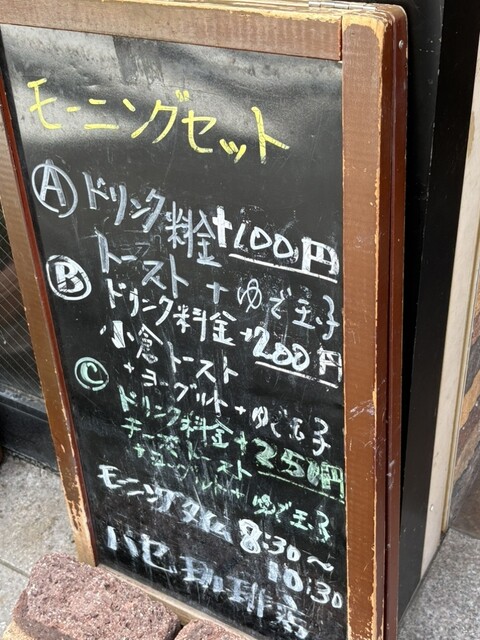 モーニングセット
Ⓐ ドリンク料金+100円
トースト + ゆで玉子
Ⓑ ドリンク料金+200円
小倉トースト
+ヨーグルト+ゆで玉子
Ⓒ ドリンク料金+350円
チーズトースト
+ヨーグルト+ ゆで玉子
モーニングタイム 8:30〜
10:30
ハセ珈琲店